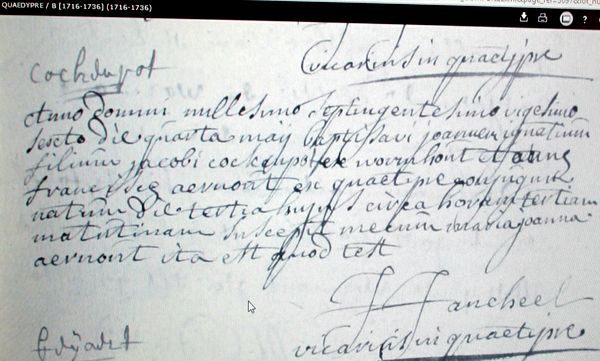 QUAEDYPRE / B [1716-1736] (1716-1736)
Cockdupot
vicarius in quaetipre
Anno domini millesimo septingentesimo vigesimo
sexto die quarta maij baptisavi joannem ignatium
filium jacobi cockdupot ex wormhout et anna
francisca aernout ex quaetipre conjugum
natum die tertia hujus circa horam tertiam
matutinam suscepit mecum maria joanna
aernout ita est quod test
vicarius in quaetipre